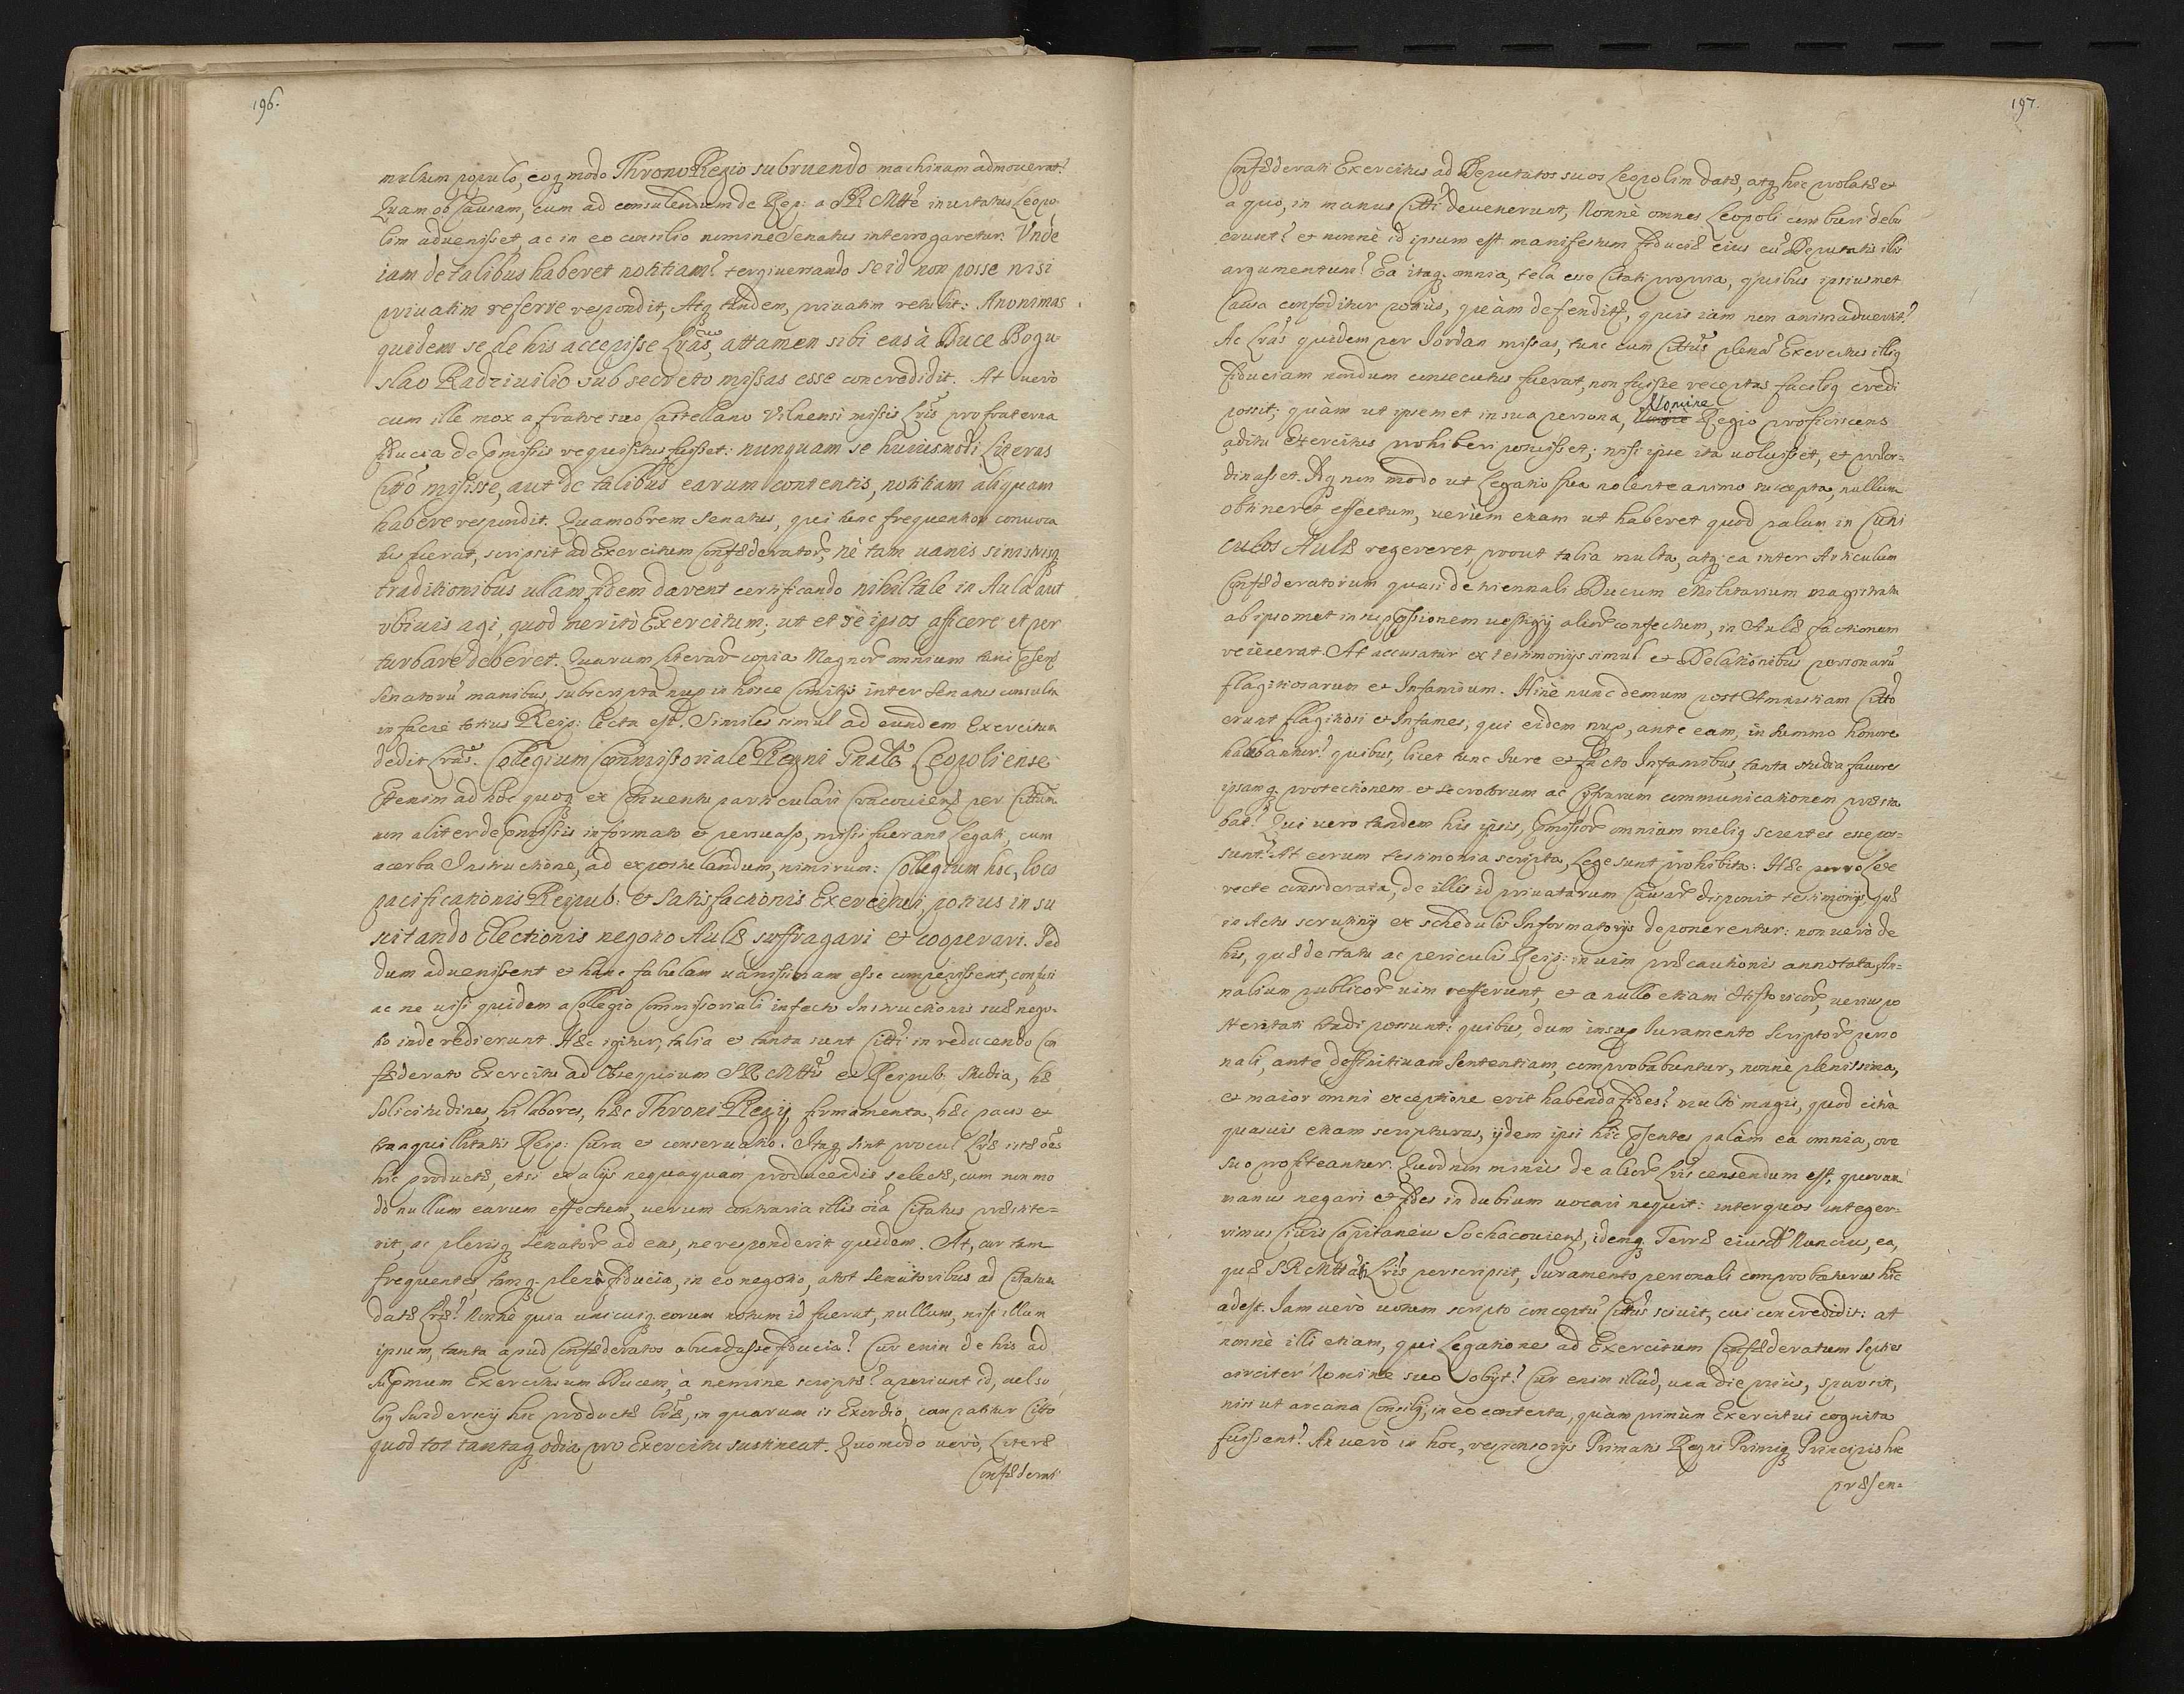 196.
multum populo, eoq modo Throno Regio subruendo machinam admouerat?
Quam ob causam, cum ad consulendum de Rep: a SRMtte inuitatus Leopo-
lim aduenisset, ac in eo consilio nomine Senatus interrogaretur. Vnde
iam de talibus haberet notitiam? tergiuersando se id non posse nisi
priuatim referre respondit, Atq tandem, priuatim retulit: Anonimas
quidem se de his accepisse Lras, attamen sibi eas à Duce Bogu-
slao Radziuilio sub secreto missas esse concredidit. At uerò
cum ille mox a fratre suo Castellano Vilnensi missis Lris pro fraterna
fiducia de pmissis requisitus fuisset: nunquam se huiusmodi Literas
Citto misisse, aut de talibus earum contentis, notitiam aliquam
habere respondit. Quamobrem Senatus, qui tunc frequentior conuoca
tus fuerat, scripsit ad Exercitum Confæderator, nè tam uanis sinistrisq
traditionibus ullam fidem darent certificando nihil tale in Aula aut
vbiuis agi, quod meritò Exercitum, ut et se ipsos afficere et per
turbare deberet. Quarum Literar copia Magnor omnium tunc psen
Senatoru manibus subscripta nup in hosce Comitijs inter Senatus consulta
in facie totius Reip: lecta est. Similes simul ad eundem Exercitum
dedit Lras. Collegium Commissoriale Regni Gnale Leopoliense
Etenim ad hoc quoq ex Conuentu particulari Cracouien per Cittum
non aliter de pmissis informato et persuaso, missi fuerant Legati, cum
acerba Instructione, ad expostulandum, nimirum: Collegium hoc, loco
pacificationis Reipub: et Satisfactionis Exercitui, potius in su
scitando Electionis negotio Aulæ suffragari et cooperari. Sed
dum aduenissent et hanc fabulam uanissimam esse comperissent, confusi
ac ne uisi quidem a Collegio Commissoriali infecto Instructionis suæ nego-
tio inde redierunt. Hæc igitur, talia et tanta sunt Citti in reducendo Con
fæderato Exercitu ad Obsequium SRMttis et Reipub: Studia, hæ
Solicitudines, hi labores, hæc Throni Regij firmamenta, hæc pacis et
tranquillitatis Reip: Cura et conseruatio. Itaq sint procul Lræ istæ oes
hic productæ, etsi ex alijs nequaquam producendis selectæ, cum non mo
dò nullum earum effectum, uerum contraria illis oia Citatus præstite-
rit, ac plerisq Senator ad eas, ne responderit quidem. At, cur tam
frequentes, tamq plenâ fiducia, in eo negotio, a tot Senatoribus ad Citatum
datæ Lræ? Nonnè quia unicuiq eorum notum id fuerat, nullum, nisi illum
ipsum, tanta apud Confæderatos abundasse fiducia? Cur enim de his ad
Supmum Exercituum Ducem, à nemine scriptæ? aperiunt id, uel so
liq Swiderscij hic productæ Lræ, in quarum is Exordio, conqueritur Citto
quod tot tantaq odia pro Exercitu sustineat. Quomodo uerò, Literæ
Confæderati
197.
Confæderati Exercitus ad Deputatos suos Leopolim datæ, atq hic prolatæ et
a quo, in manus Citti deuenerunt, Nonnè omnes Leopoli comburi debu
erunt? et nonnè id ipsum est manifestum fiduciæ eius cu Deputatis illis
argumentum? Ea itaq omnia, tela esse Citati propria, quibus ipsiusmet
Causa confoditur potiùs, quàm defendit, quis iam non animaduertit?
Ac Lras quidem per Iordan missas, tunc cum Cittus plena Exercitus illiq
fiduciam nondum consecutus fuerat, non fuisse receptas faciliq credi
possit; quàm ut ipsemet in sua persona, Nomine Regio proficiscens
aditu Exercitus prohiberi potuisset, nisi ipse ita uoluisset, et præor-
dinasset. Atq non modo ut Legatio sua nolente animo suscepta, nullum
obtineret effectum, uerùm etiam ut haberet quod palam in Cuni
culos Aulæ regereret, prout talia multa, atq ea inter Articulum
Confæderatorum quasi de triennali Ducum Militarium magistratu
ab ipsomet in suppssionem uestigij alior confectum, in Aulæ factionem
reiecerat. At accusatur ex testimonijs simul et Delationibus personaru
flagitiosarum et Infamium. Hinè nunc demum post Amnistiam Citto
erunt flagitiosi et Infames, qui eidem nup, ante eam, in summo honore
habebantur? quibus, licet tunc Iure et facto Infamibus, tanta studia fauores
ipsamq protectionem et secretorum ac Cyfrarum communicationem præsta
bat? Qui uero tandem his ipsis, pmissor omnium meliq scientes esse pos-
sunt? At eorum testimonia scripta, Lege sunt prohibita: Hæc porro Lex
recte considerata, de illis id priuatarum causar disponit testimonijs, quæ
in Actu scrutinij ex schedulis Informatorijs deponerentur: non uerò de
his, quæ de statu ac periculis Reip: in uim præcautionis annotata An-
nalium publicor uim refferunt, et a nullo etiam Historicor uerius po
steritati tradi possunt: quibus, dum insup Iuramento Scriptor perso
nali, ante deffinitiuam Sententiam, comprobabuntur, nonnè plenissima,
et maior omni exceptione erit habenda fides? multò magis, quod citra
quasuis etiam scripturas, ijdem ipsi hic psentes palàm ea omnia, ore
suo profiteantur. Quod non minùs de alior Lris censendum est, quorum
manus negari et fides in dubium uocari nequit: inter quos integer-
rimus Ciuis Capitaneus Sochacouien, idemq Terræ eiusd Nuncius, ea,
quæ SRMtti Lris perscripsit, Iuramento personali comprobaturus hîc
adest. Iam uerò uotum scripto conceptu Cittus sciuit, cui concredidit: at
nonnè illi etiam, qui Legationes ad Exercitum Confæderatum Septies
circiter Nomine suo obijt? Cur enim illud, una die priùs, sparsit,
nisi ut arcana Consilij, in eo contenta, quàm primùm Exercitui cognita
fuissent? An uerò in hoc, responsorijs Primatis Regni Primiq Principis hic
præsen-